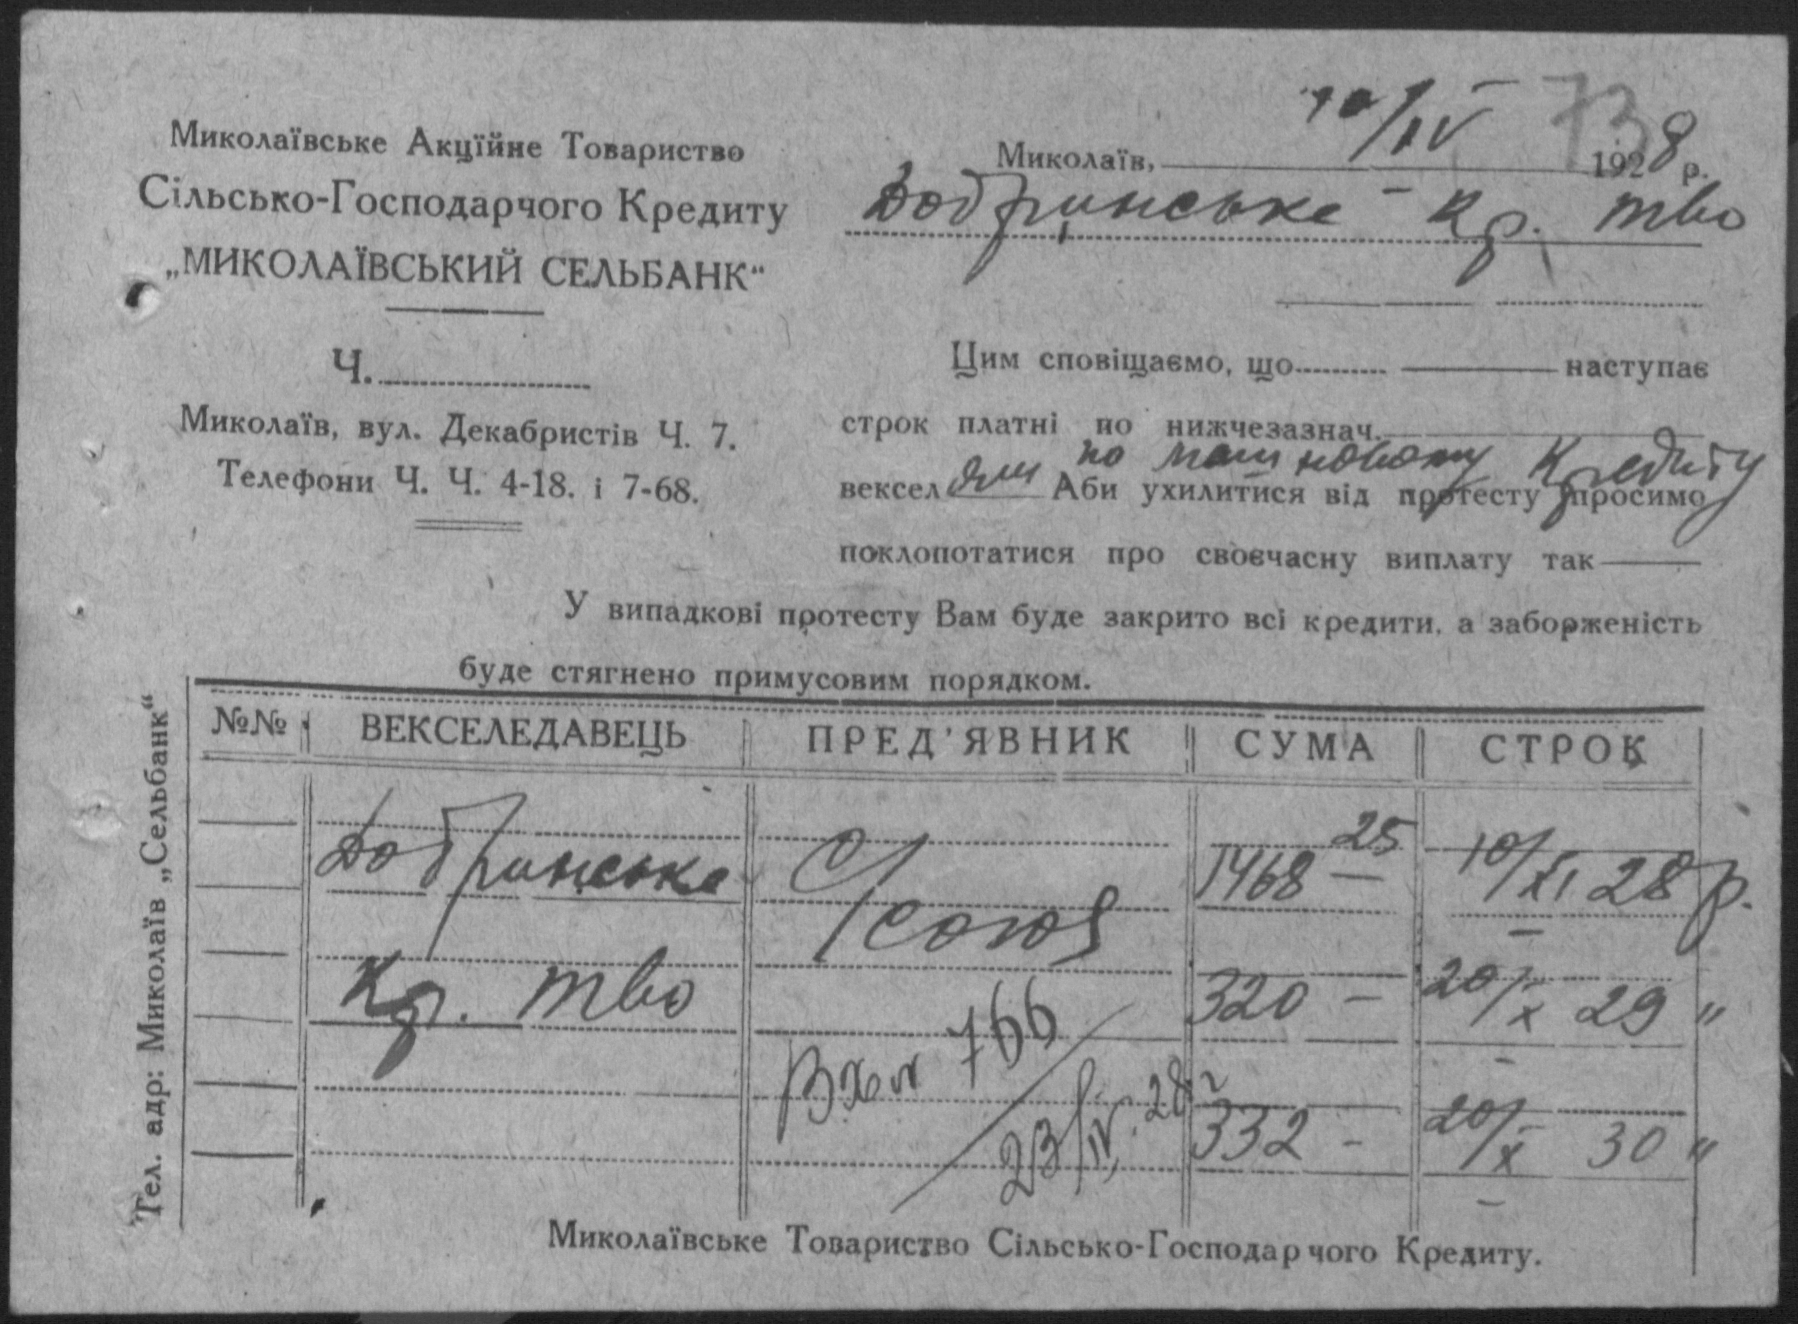 73
Миколаївське Акціїйне Товариство
Сільсько-Господарчого Кредиту
„МИКОЛАЇВСЬКИЙ СЕЛЬБАНК“
Ч.
Миколаїв, вул. Декабристів Ч. 7.
Телефони Ч. Ч. 4-18. і 7-68.
Миколаїв, 10/IV 1928 р.
Добринське Кр. тво
Цим сповіщаємо, що наступає
строк платні по нижчезазнач.
по машиновому Кредиту
векселями Аби ухилитися від протесту просимо
поклопотатися про своєчасну виплату так
У випадкові протесту Вам буде закрито всі кредити, а заборженість
буде стягнено примусовим порядком.
Тел. адр: Миколаїв „Сельбанк“
№№ ВЕКСЕЛЕДАВЕЦЬ ПРЕД'ЯВНИК СУМА СТРОК
Добринське С/союз 1468 25 10/XI 28 р.
Кр. тво 320 – 20/X 29 "
Вх № 766
23/IV. 28 332 – 20/X 30 "
Миколаївське Товариство Сільсько-Господарчого Кредиту.